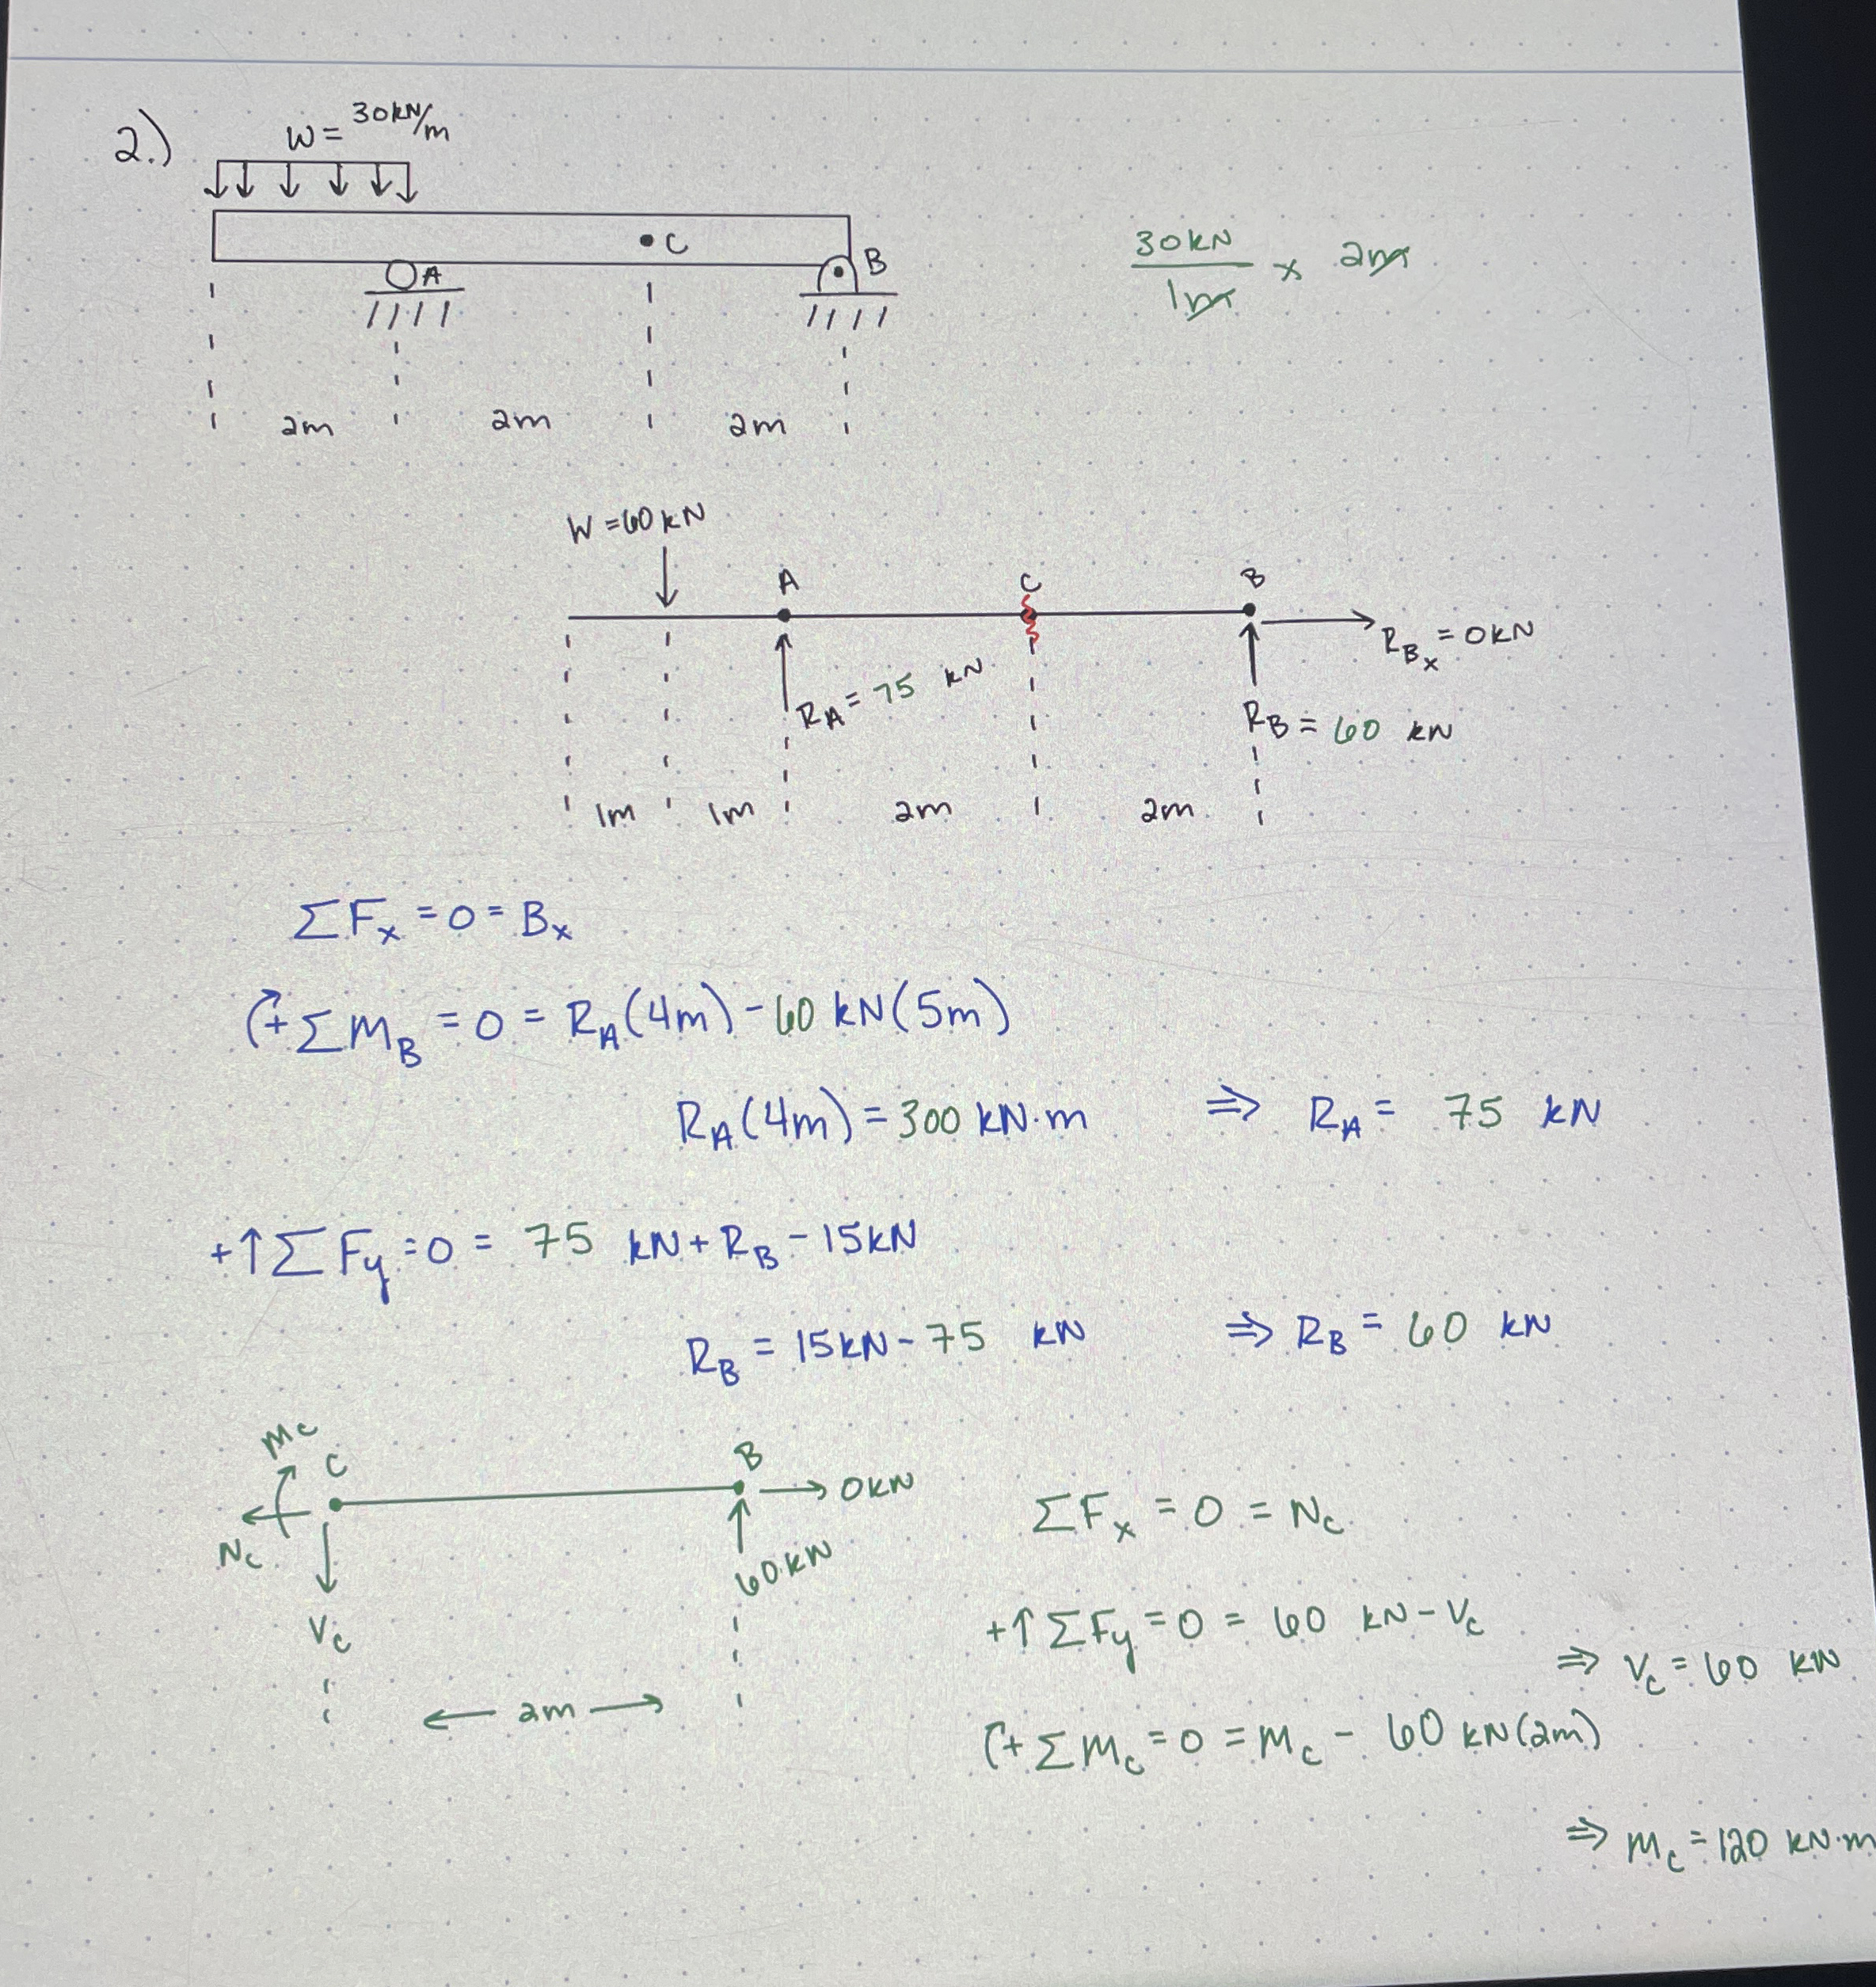 2.)
W = 30kN/m
C
A
B
2m 2m 2m
30kN/1m x 2m
W = 60 kN
A C B
RBx = 0kN
RA = 75 kN
RB = 60 kN
1m 1m 2m 2m
ΣFx = 0 = Bx
(+ ΣMB = 0 = RA(4m) - 60 kN(5m)
RA(4m) = 300 kN·m ⇒ RA = 75 kN
+↑ΣFy = 0 = 75 kN + RB - 15kN
RB = 15kN - 75 kN ⇒ RB = 60 kN
Mc
C
B
0kN
Nc
60 kN
Vc
2m
ΣFx = 0 = Nc
+↑ΣFy = 0 = 60 kN - Vc
⇒ Vc = 60 kN
(+ ΣMc = 0 = Mc - 60 kN(2m)
⇒ Mc = 120 kN·m